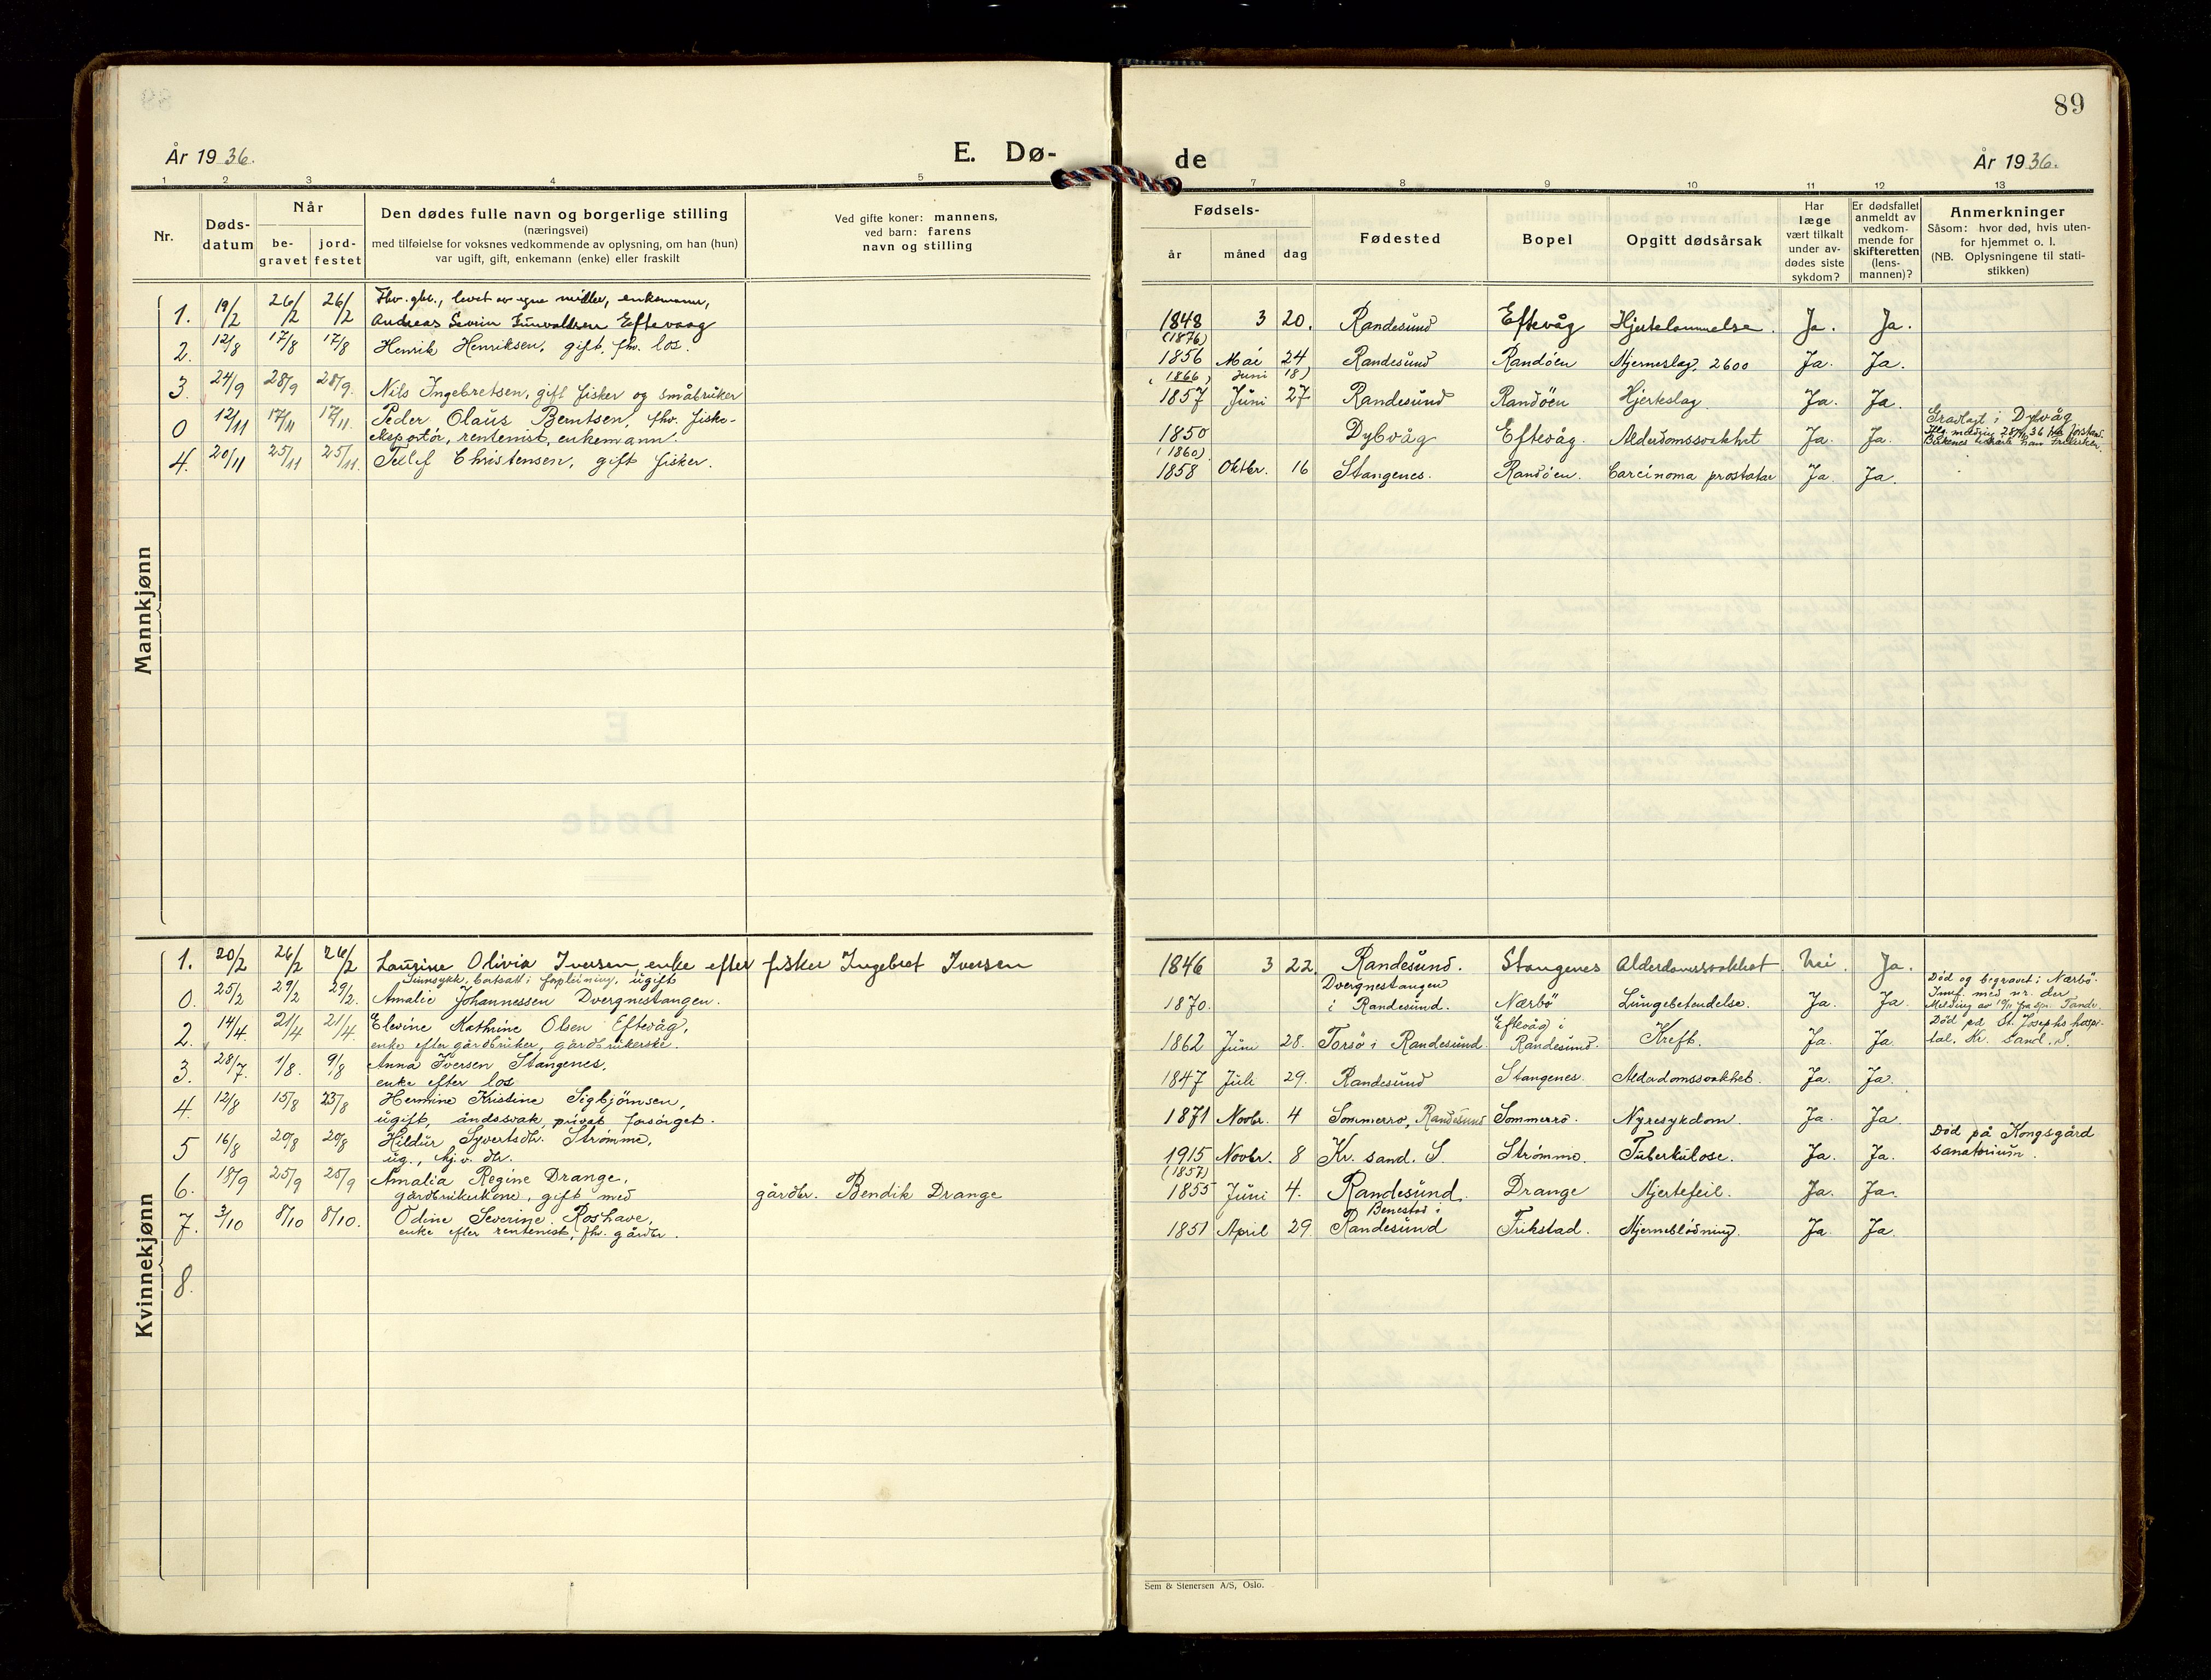 89
År 1936.
E. Dø-
de
År 1936.
1 2 3 4 5 7 8 9 10 11 12 13
Nr.
Døds-
datum
Når
be-
gravet
jord-
festet
Den dødes fulle navn og borgerlige stilling
(næringsvei)
med tilføielse for voksnes vedkommende av oplysning, om han (hun)
var ugift, gift, enkemann (enke) eller fraskilt
Ved gifte koner: mannens,
ved barn: farens
navn og stilling
Fødsels-
år
måned
dag
Fødested
Bopel
Opgitt dødsårsak
Har
læge
vært tilkalt
under av-
dødes siste
sykdom?
Er dødsfallet
anmeldt av
vedkom-
mende for
skifteretten
(lens-
mannen)?
Anmerkninger
Såsom: hvor død, hvis uten-
for hjemmet o. l.
(NB. Oplysningene til stati-
stikken)
Mannkjønn
Fhv. gbr., levet av egne midler, enkemann,
1. 19/2 26/2 26/2 Andreas Severin Gunvaldsen Eftevaag 1848 3 20. Randesund Eftevåg Hjertelammelse. Ja. Ja.
(1876)
2. 12/8 17/8 17/8 Henrik Henriksen, gift, fhv. los. 1856 Mai 24 Randesund Randöen Hjerneslag, 2600 Ja. Ja.
(1866, Juni 18)
3. 24/9 28/9 28/9. Nils Ingebretsen, gift fisker og småbruker 1857 Juni 27 Randesund Randöen Hjerteslag Ja. Ja.
0 12/11 17/11 17/11. Peder Olaus Berntsen, fhv. fiske-
eksportör, rentenist, enkemann. 1850 Dybvåg Eftevåg. Alderdomssvakhet Ja. Ja. Gravlagt i Dybvåg
(1860)
4. 20/11 25/11 25/11. Tellef Christensen, gift fisker. 1858 Oktbr. 16 Stangenes. Randöen. Carcinoma prostatae Ja. Ja.
Kvinnekjønn
1. 20/2 26/2 26/2 Laurine Olivia Iversen, enke efter fisker Ingebret Iversen 1846 3 22. Randesund. Stangenes Alderdomssvakhet Nei. Ja.
Sinnsykk, bortsatt i forpleining, ugift
0. 25/2 29/2 29/2. Amalie Johannessen Dvergnestangen. 1870. Dvergnestangen
i Randesund. Nærbö Lungebetendelse. Ja. Ja. Död og begravet i Nærbö.
Innf. med nr. der
2. 14/4. 21/4 21/4. Elevine Kathrine Olsen Eftevåg,
enke efter gårdbruker, gårdbrukerske. 1862 Juni 28. Torsö i Randesund. Eftevåg i
Randesund. Kreft. Ja. Ja. Död på St. Josephs hospi-
tal, Kr. sand. S.
3. 28/7. 1/8. 9/8 Anna Iversen Stangenes,
enke efter los 1847 Juli 29. Randesund Stangenes. Alderdomssvakhet. Ja. Ja.
4. 12/8 15/8 23/8 Hermine Kristine Sigbjörnsen,
ugift, åndssvak, privat forsörget. 1871 Novbr. 4 Sommerro, Randesund Sommerrö. Nyresykdom. Ja. Ja
5 16/8 20/8 20/8 Hildur Syvertsdtr. Strömme,
ug., hj.v. dtr. 1915 Novbr. 8 Kr. sand. S. Strömme. Tuberkulose. Ja. Ja. Död på Kongsgård
sanatorium.
(1857)
6. 18/9 25/9 25/9 Amalia Regine Drange,
gårdbrukerkone, gift med gårdbr. Bendik Drange 1855 Juni 4. Randesund. Drange Hjertefeil. Ja. Ja.
7. 3/10 8/10 8/10. Odine Severine Roshave,
enke efter rentenist, fhv. gårdbr. 1851 April 29 Benestad i
Randesund Frikstad. Hjerneblödning. Ja Ja
8.
Sem & Stenersen A/S, Oslo.